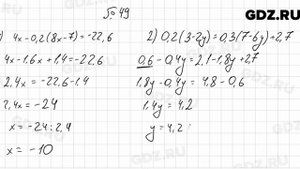 №49
GDZ.RU
) 4x-0,2(8x-7)=-22,6
4x-1,6x+1,4=-22,6
2,4x=-22,6-1,4
2,4x=-24
x=-24:2,4
x=-10
2) 0,2(3-2y)=0,3(7-6y)+2,7
0,6-0,4y=2,1-1,8y+2,7
1,8y-0,4y=4,8-0,6
1,4y=4,2
y=4,2:
GDZ.RU